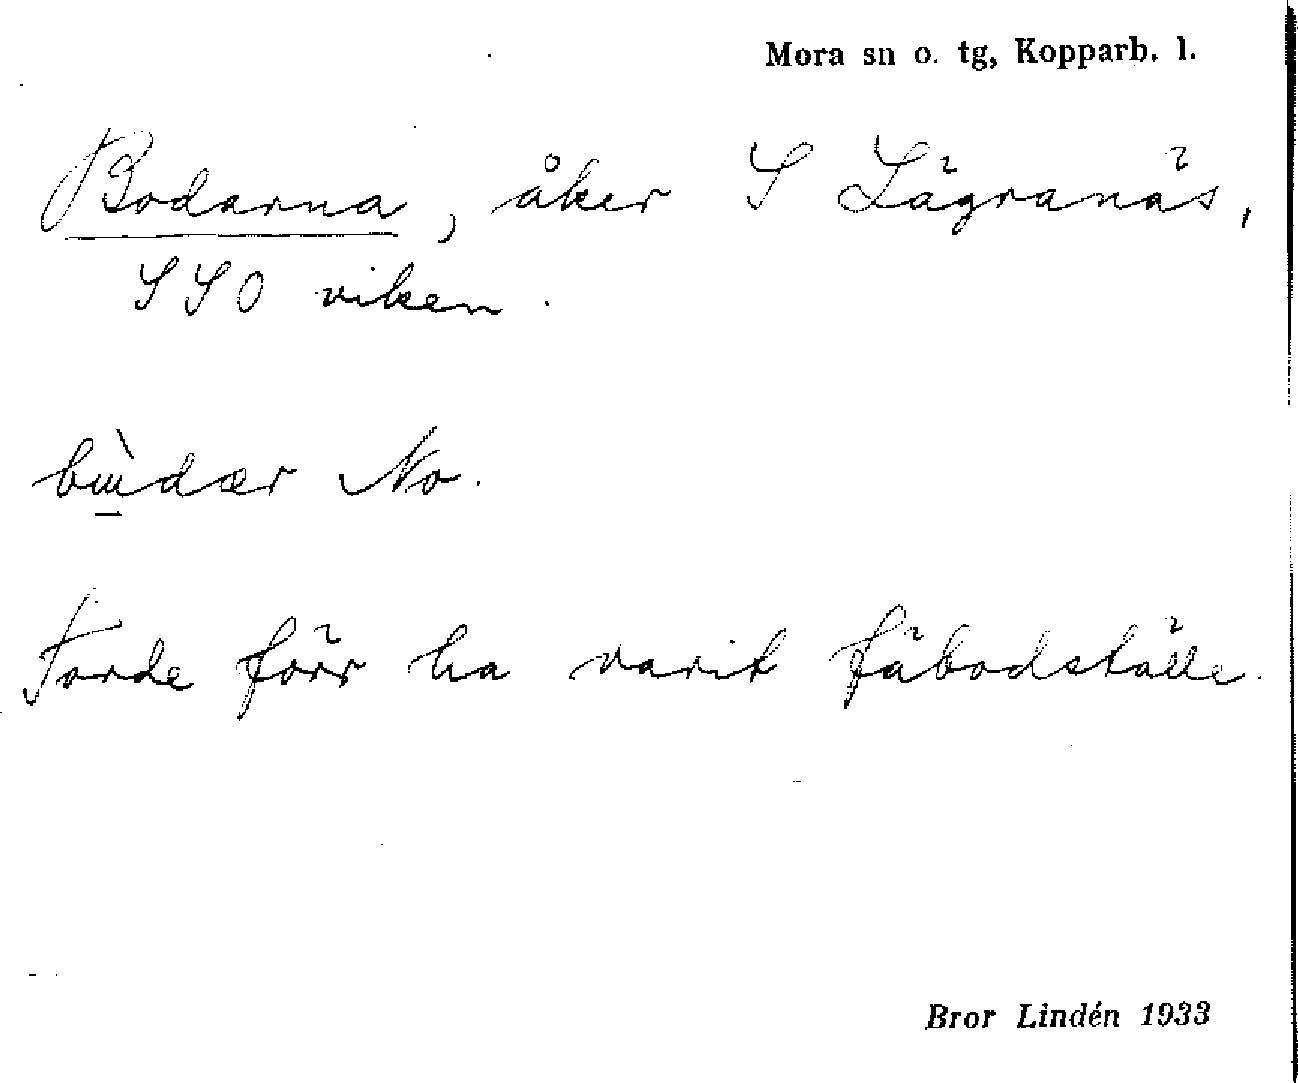 Mora sn o. tg, Kopparb. l.
Bodarna, åker S Lägranäs,
SSO viken.
bɯ̀dær No.
Torde förr ha varit fäbodställe.
Bror Lindén 1933